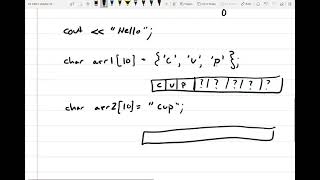 0
cout << "Hello";
char arr1[10] = {'c', 'u', 'p'};
c u p ? ? ? ? ? ?
char arr2[10] = "cup";